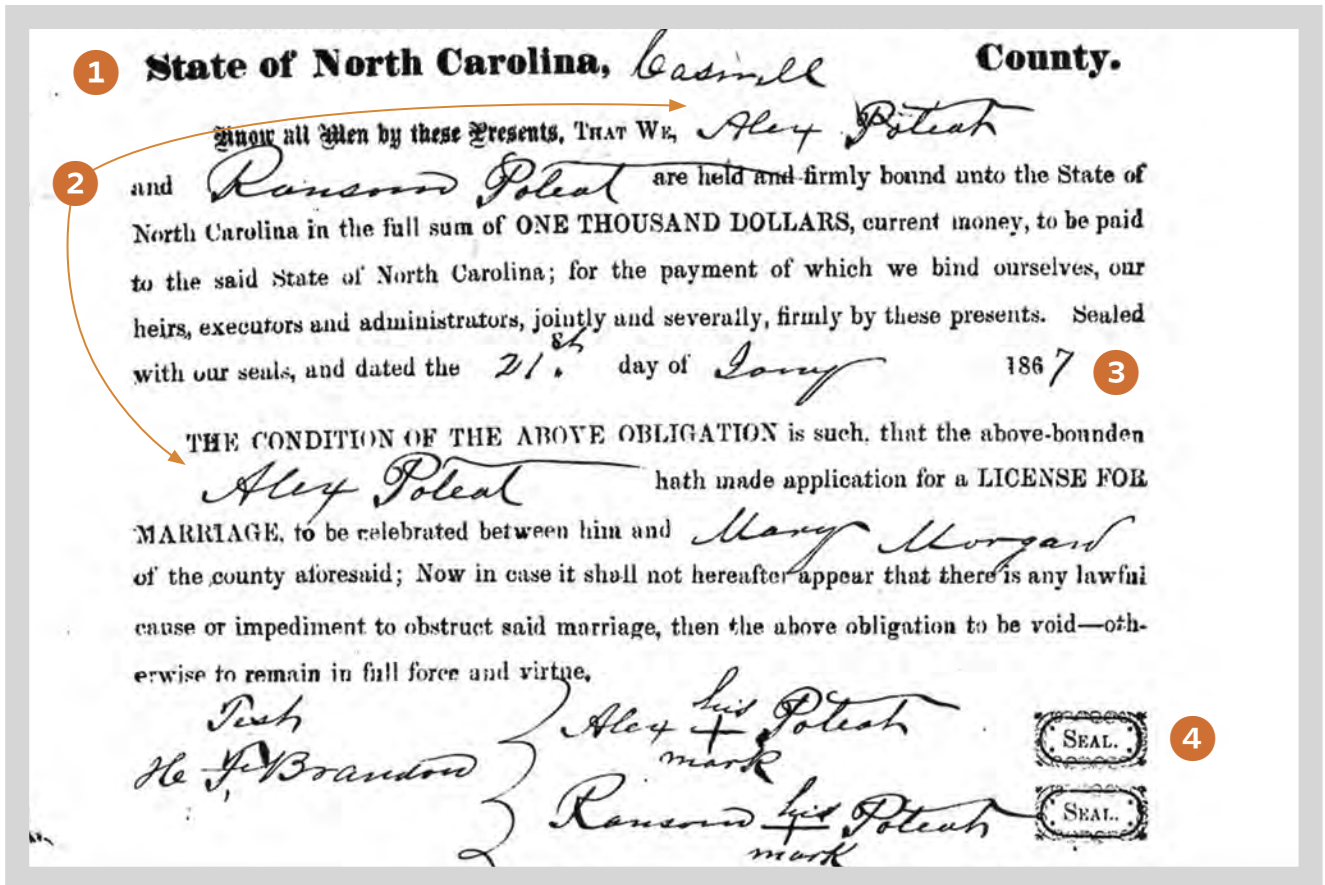 1 State of North Carolina, Caswell County.
Know all Men by these Presents, THAT WE, Alex Poteat
2 and Ransom Poteat are held and firmly bound unto the State of
North Carolina in the full sum of ONE THOUSAND DOLLARS, current money, to be paid
to the said State of North Carolina; for the payment of which we bind ourselves, our
heirs, executors and administrators, jointly and severally, firmly by these presents. Sealed
with our seals, and dated the 21.st day of Jany 1867 3
THE CONDITION OF THE ABOVE OBLIGATION is such, that the above-bounden
Alex Poteat hath made application for a LICENSE FOR
MARRIAGE, to be celebrated between him and Mary Morgan
of the county aforesaid; Now in case it shall not hereafter appear that there is any lawful
cause or impediment to obstruct said marriage, then the above obligation to be void—oth-
erwise to remain in full force and virtue.
Test
Alex his + mark Poteat SEAL. 4
Brandon
Ransom his + mark Poteat SEAL.